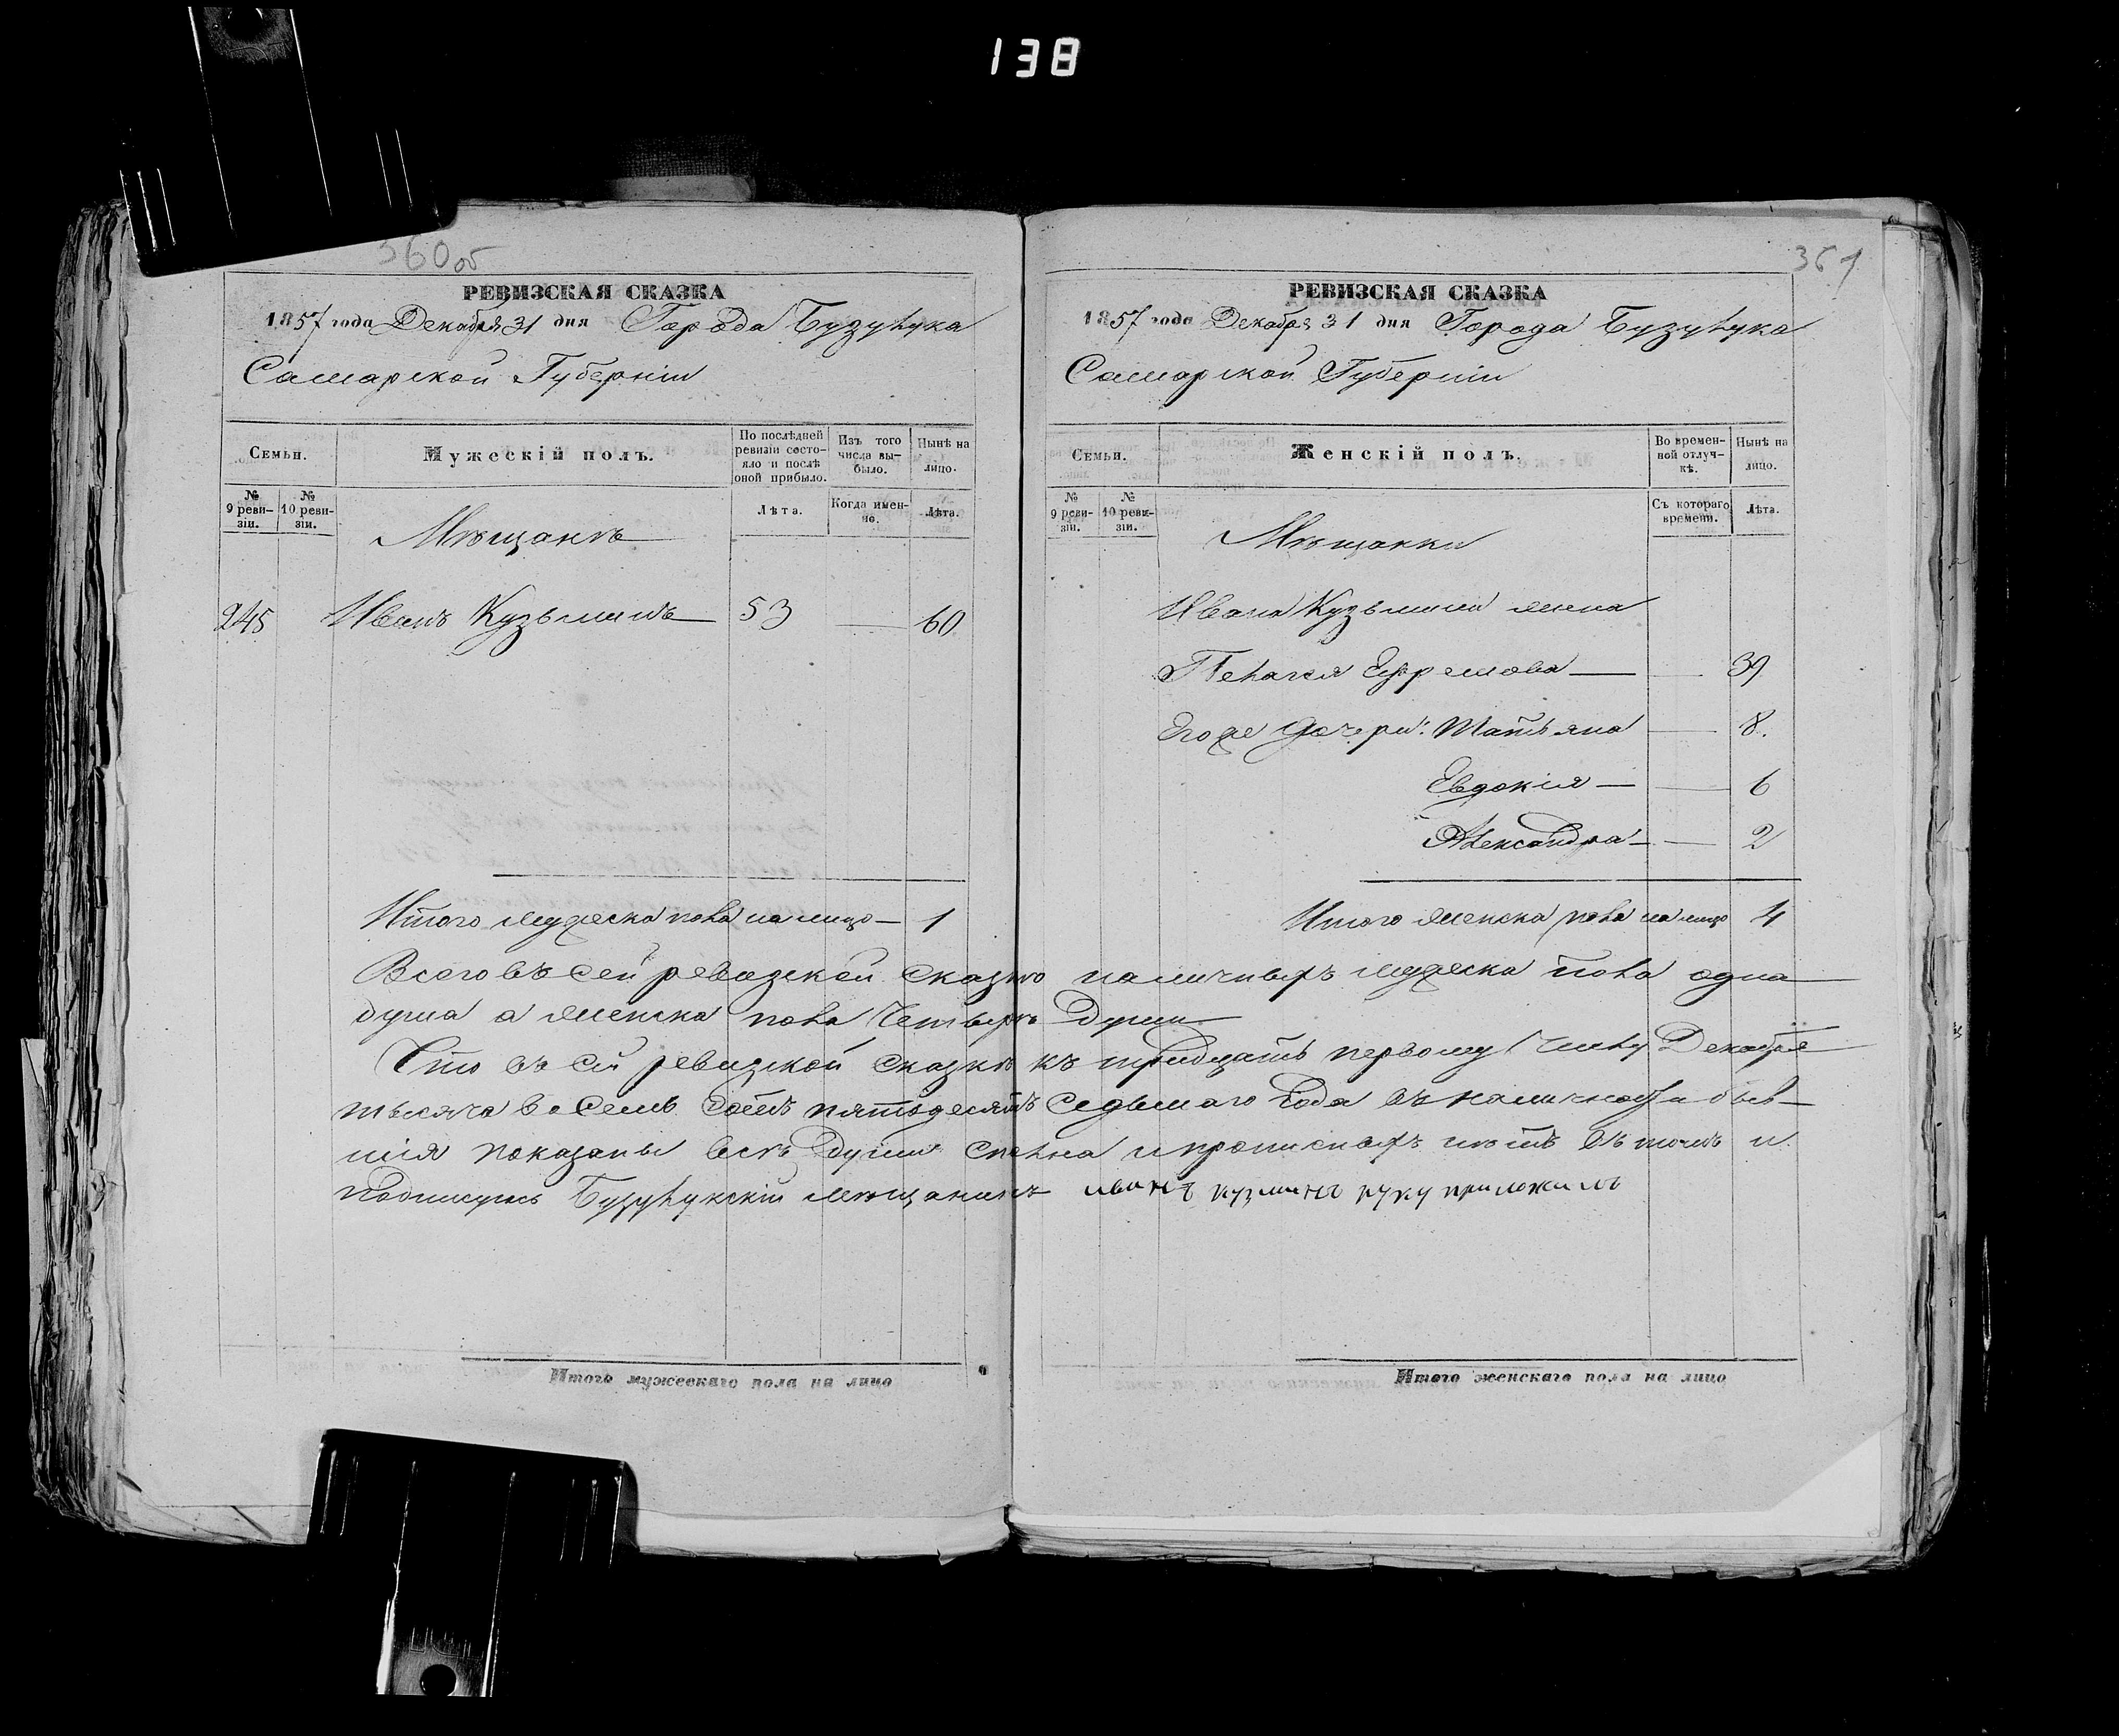 138
360 об
РЕВИЗСКАЯ СКАЗКА
1857 года Декабря 31 дня Города Бузулука
Самарской Губерніи
Семьи.
Мужескій полъ.
По послѣдней ревизіи состояло и послѣ оной прибыло.
Изъ того числа выбыло.
Нынѣ на лицо.
№ 9 ревизіи.
№ 10 ревизіи.
Лѣта.
Когда именно.
Лѣта.
Мѣщанъ
245 Иванъ Кузьминъ 53 — 60
Итого мужеска пола на лицо — 1
361
РЕВИЗСКАЯ СКАЗКА
1857 года Декабря 31 дня Города Бузулука
Самарской Губерніи
Семьи.
Женскій полъ.
Во временной отлучкѣ.
Нынѣ на лицо.
№ 9 ревизіи.
№ 10 ревизіи.
Съ котораго времени.
Лѣта.
Мѣщанки
Ивана Кузьмина жена
Пелагея Ефремова — — 39
Его же дочери: Татьяна — 8.
Евдокія — — 6
Александра — — 2
Итого женска пола на лицо 4
Всего въ сей ревизской сказкѣ наличныхъ мужеска пола одна
душа а женска пола четыре души
Что въ сей ревизской сказкѣ къ тридцать первому числу Декабря
тысяча восемь сотъ пятьдесятъ седьмаго года въ наличности быв-
шія показаны всѣ души сполна и прописныхъ нѣтъ въ томъ и
подпишусь Бузулукскій мѣщанинъ иванъ кузминъ руку приложилъ
Итого мужескаго пола на лицо
Итого женскаго пола на лицо